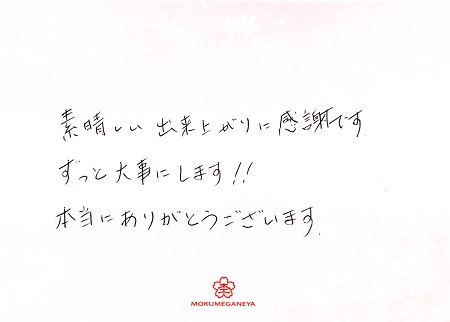 素晴しい 出来上がりに 感謝です
ずっと大事にします!!
本当にありがとうございます.
MOKUMEGANEYA